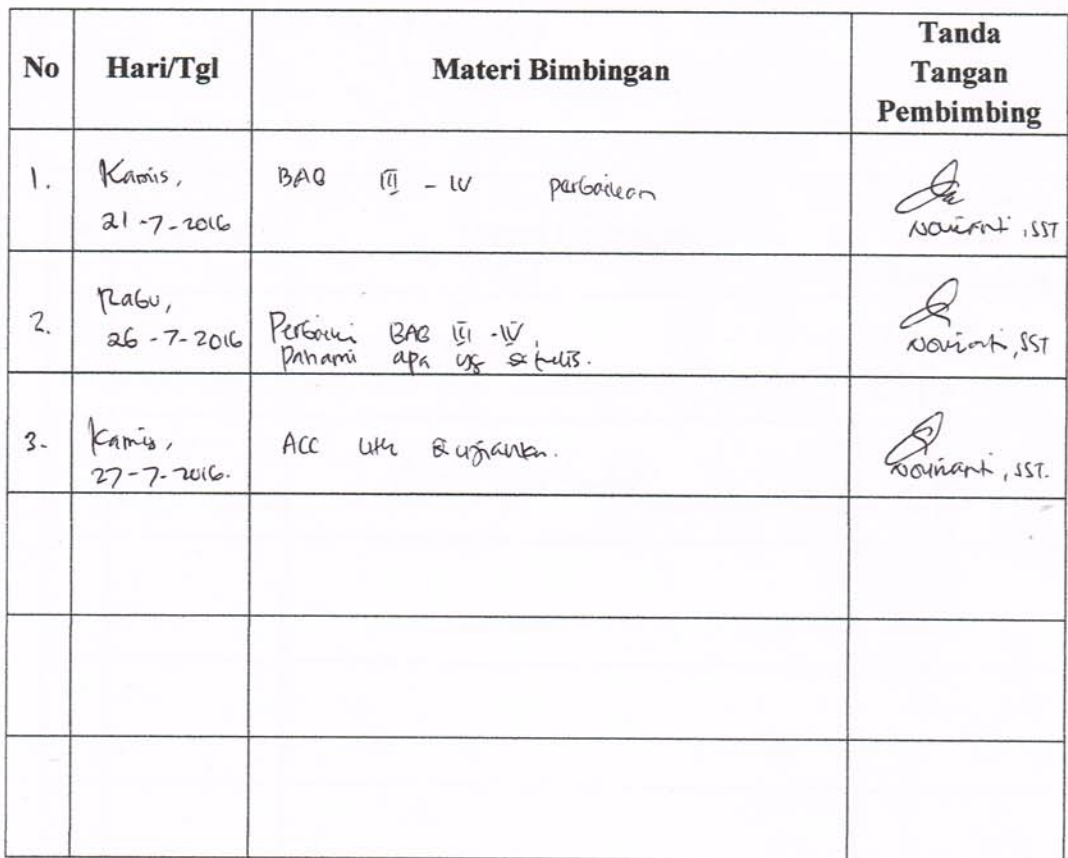 No Hari/Tgl Materi Bimbingan Tanda Tangan Pembimbing
1. Kamis, BAB III - IV perbaikan
21-7-2016
Novianti, SST
2. Rabu,
26-7-2016 Perbaiki BAB III - IV,
Pahami apa yg ditulis.
Novianti, SST
3. Kamis, ACC utk diujiankan.
27-7-2016.
Novianti, SST.